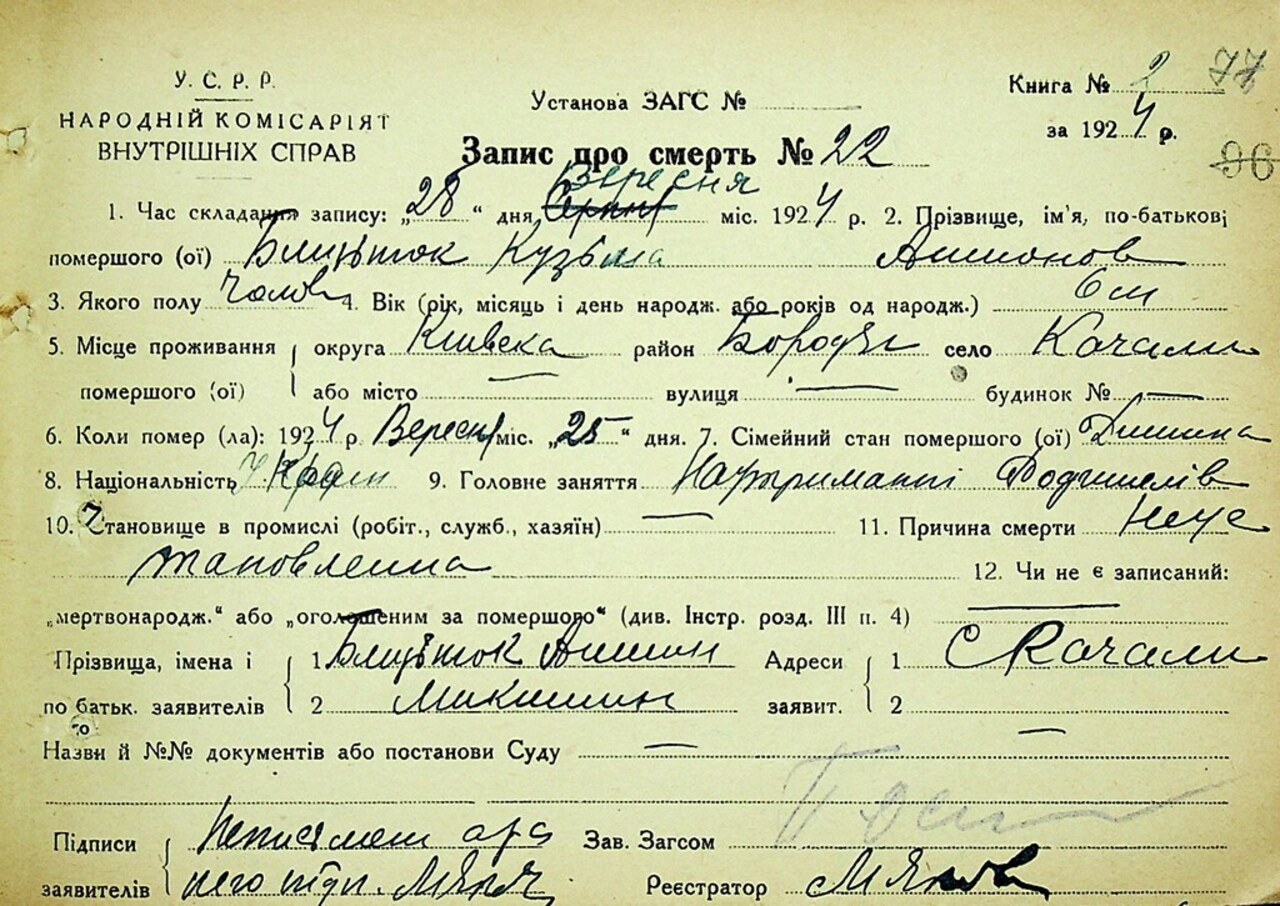 У. С. Р. Р.
НАРОДНІЙ КОМІСАРІЯТ
ВНУТРІШНІХ СПРАВ
Установа ЗАГС №
Книга № 2 77
за 1924 р.
96
Запис про смерть № 22
Вересня
1. Час складання запису: „28“ дня Серпня міс. 1924 р. 2. Прізвище, ім'я, по-батькові
помершого (ої) Кузьма
3. Якого полу Чолов 4. Вік (рік, місяць і день народж. або років од народж.) 6 м
5. Місце проживання округа Київська район Бородян село Качали
помершого (ої) або місто — вулиця — будинок № —
6. Коли помер (ла): 1924 р. Вересня міс. „25“ дня. 7. Сімейний стан помершого (ої) Дитина
8. Національність Украін 9. Головне заняття На утриманні Родителів
10. Становище в промислі (робіт., служб., хазяїн) — 11. Причина смерти Неус
тановленна 12. Чи не є записаний:
„мертвонародж.“ або „оголошеним за помершого“ (див. Інстр. розд. III п. 4) —
Прізвища, імена і 1 Адреси 1 С Качали
по батьк. заявителів 2 заявит. 2 —
Назви й №№ документів або постанови Суду —
Підписи Неписмен а за Зав. Загсом
заявителів него підп. Реєстратор